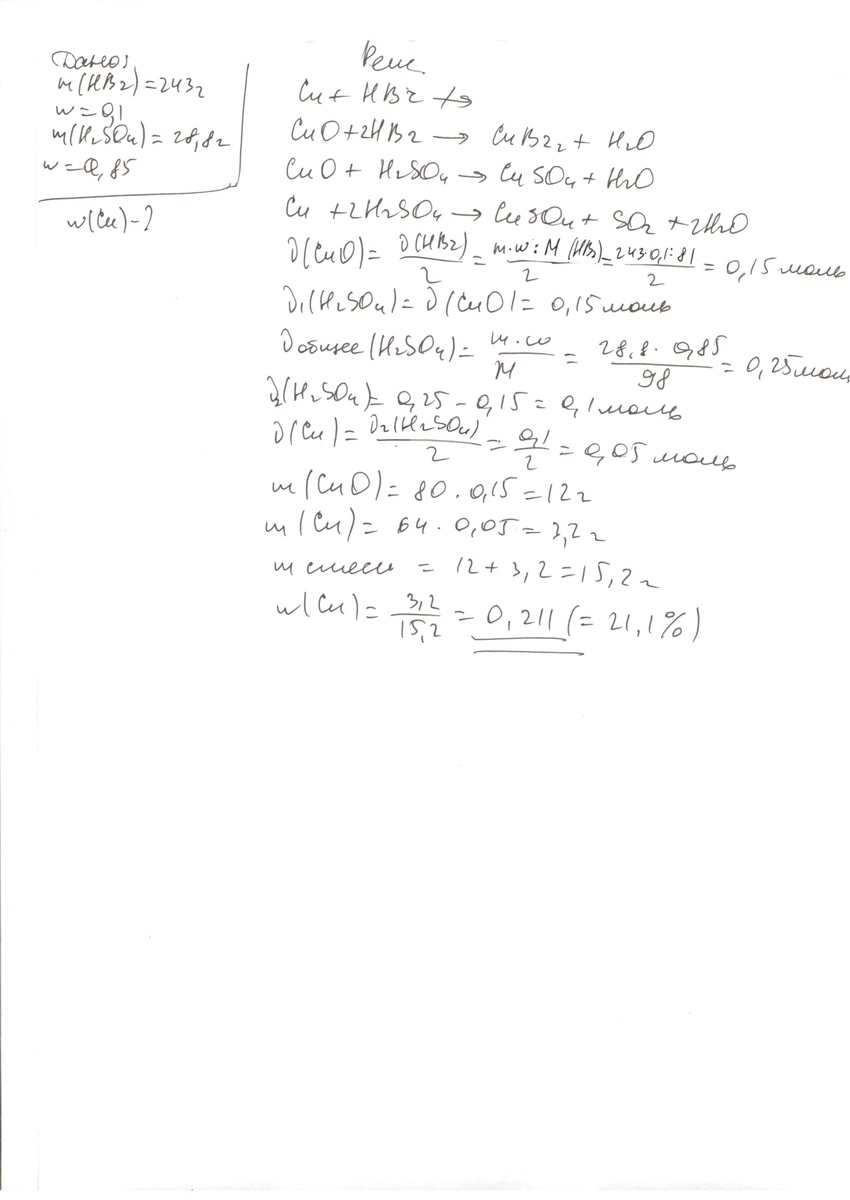 Дано:
m(HBr)=243г
w=0,1
m(H₂SO₄)=28,8г
w=0,85
w(Cu)-?
Реш.
Cu + HBr ↛
CuO+2HBr → CuBr₂ + H₂O
CuO + H₂SO₄ → CuSO₄ + H₂O
Cu +2H₂SO₄ → CuSO₄ + SO₂ +2H₂O
ν(CuO)= ν(HBr)/2 = m·w:M(HBr)/2 = 243·0,1:81/2 = 0,15 моль
ν₁(H₂SO₄)= ν(CuO)= 0,15 моль
ν общее (H₂SO₄)= m·w/M = 28,8·0,85/98 = 0,25 моль
ν₂(H₂SO₄)= 0,25 - 0,15 = 0,1 моль
ν(Cu)= ν₂(H₂SO₄)/2 = 0,1/2 = 0,05 моль
m(CuO)= 80·0,15=12г
m(Cu)= 64·0,05=3,2г
m смеси = 12+3,2=15,2г
w(Cu)= 3,2/15,2 = 0,211 (= 21,1%)